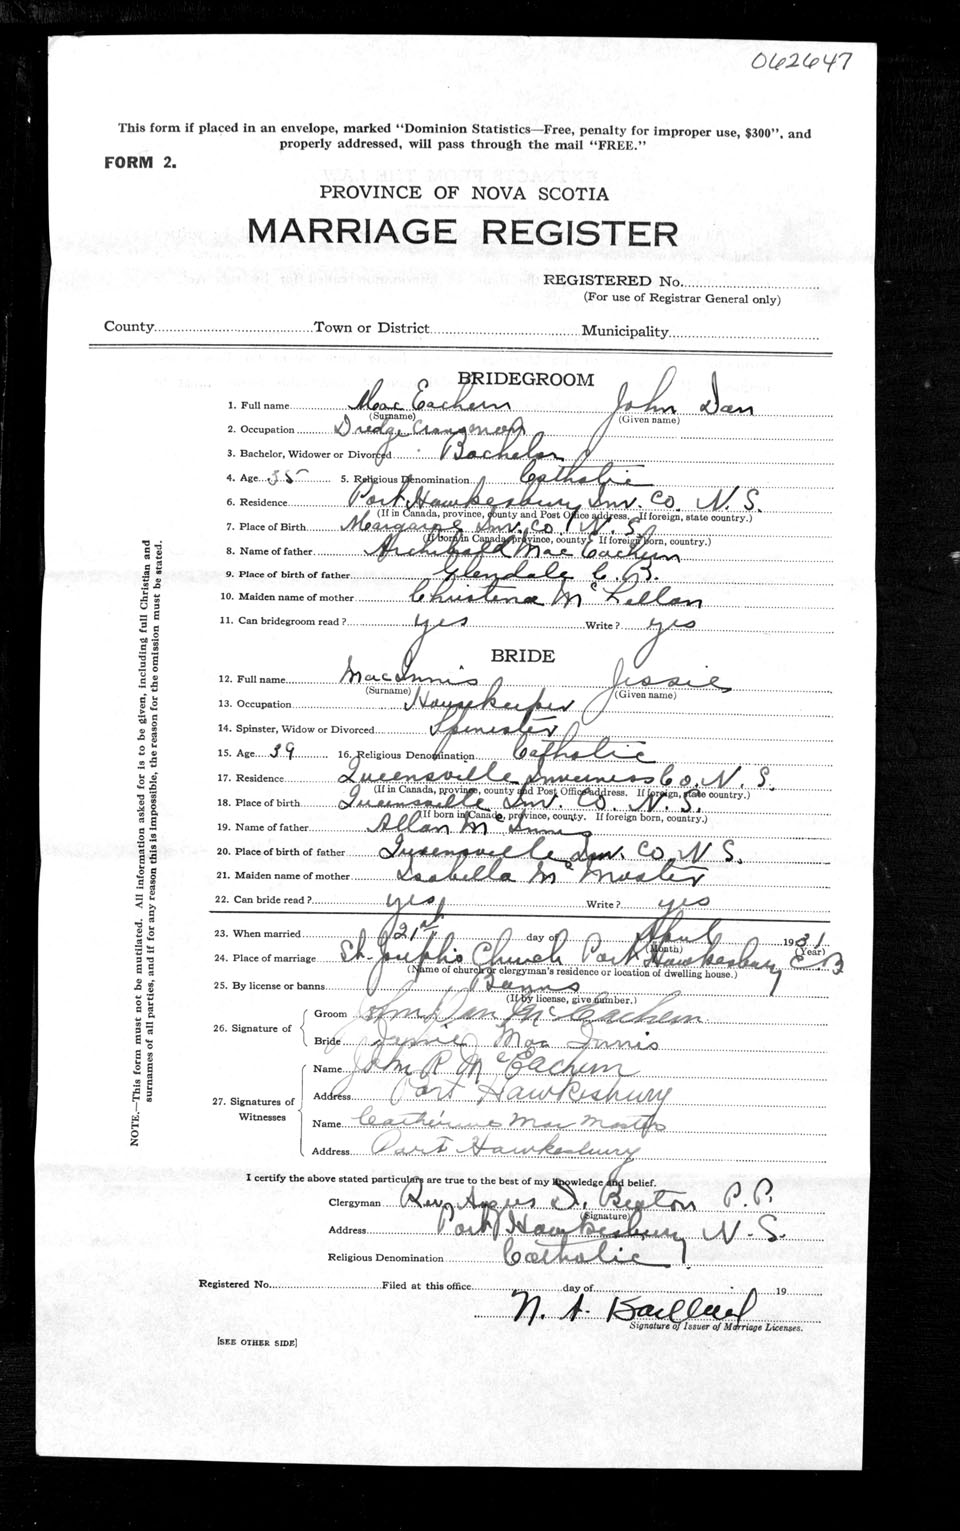 062647
This form if placed in an envelope, marked "Dominion Statistics—Free, penalty for improper use, $300", and
properly addressed, will pass through the mail "FREE."
FORM 2.
PROVINCE OF NOVA SCOTIA
MARRIAGE REGISTER
REGISTERED No.
(For use of Registrar General only)
County Town or District Municipality
BRIDEGROOM
1. Full name Mac Eachern John Dan
(Surname) (Given name)
2. Occupation Dredge
3. Bachelor, Widower or Divorced Bachelor
4. Age 35 5. Religious Denomination Catholic
6. Residence Port Hawkesbury Inv. Co. N. S.
(If in Canada, province, county and Post Office address. If foreign, state country.)
7. Place of Birth Margaree Inv. Co. N. S.
(If born in Canada, province, county. If foreign born, country.)
8. Name of father Archibald Mac Eachern
9. Place of birth of father Glendale C. B.
10. Maiden name of mother Christena Mc Lellan
11. Can bridegroom read? yes Write? yes
BRIDE
12. Full name MacInnis Jessie
(Surname) (Given name)
13. Occupation Housekeeper
14. Spinster, Widow or Divorced Spinster
15. Age 39 16. Religious Denomination Catholic
17. Residence Queensville Inverness Co. N. S.
(If in Canada, province, county and Post Office address. If foreign, state country.)
18. Place of birth Queensville Inv. Co. N. S.
(If born in Canada, province, county. If foreign born, country.)
19. Name of father Allan Mc Innis
20. Place of birth of father Queensville Inv. Co N S.
21. Maiden name of mother Isabella Mc Master
22. Can bride read? yes Write? yes
23. When married 21st day of April 1931
(Month) (Year)
24. Place of marriage St. Joseph's Church Port Hawkesbury C. B
(Name of church or clergyman's residence or location of dwelling house.)
25. By license or banns Banns
(If by license, give number.)
26. Signature of
Groom John Dan McEachern
Bride Jessie Mac Innis
27. Signatures of Witnesses
Name John R McEachern
Address Port Hawkesbury
Name Catherine Mac Master
Address Port Hawkesbury
I certify the above stated particulars are true to the best of my knowledge and belief.
Clergyman Rev Angus D. Beaton P. P.
(Signature)
Address Port Hawkesbury N. S.
Religious Denomination Catholic
Registered No. Filed at this office day of 19
N. A.
Signature of Issuer of Marriage Licenses.
[SEE OTHER SIDE]
NOTE.—This form must not be mutilated. All information asked for is to be given, including full Christian and
surnames of all parties, and if for any reason this is impossible, the reason for the omission must be stated.